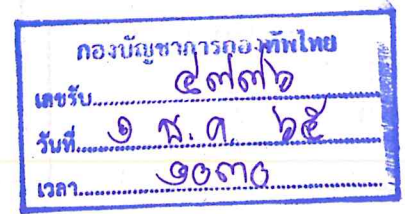 กองบัญชาการกองทัพไทย
เลขรับ.....๔๗๗๖
วันที่.....๑ ส.ค. ๖๕
เวลา.....๑๐๓๐